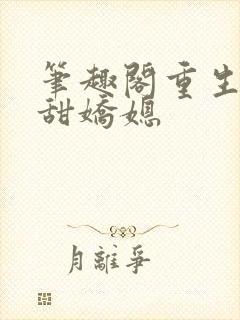 筆趣閣重生
甜嬌媳
月離爭